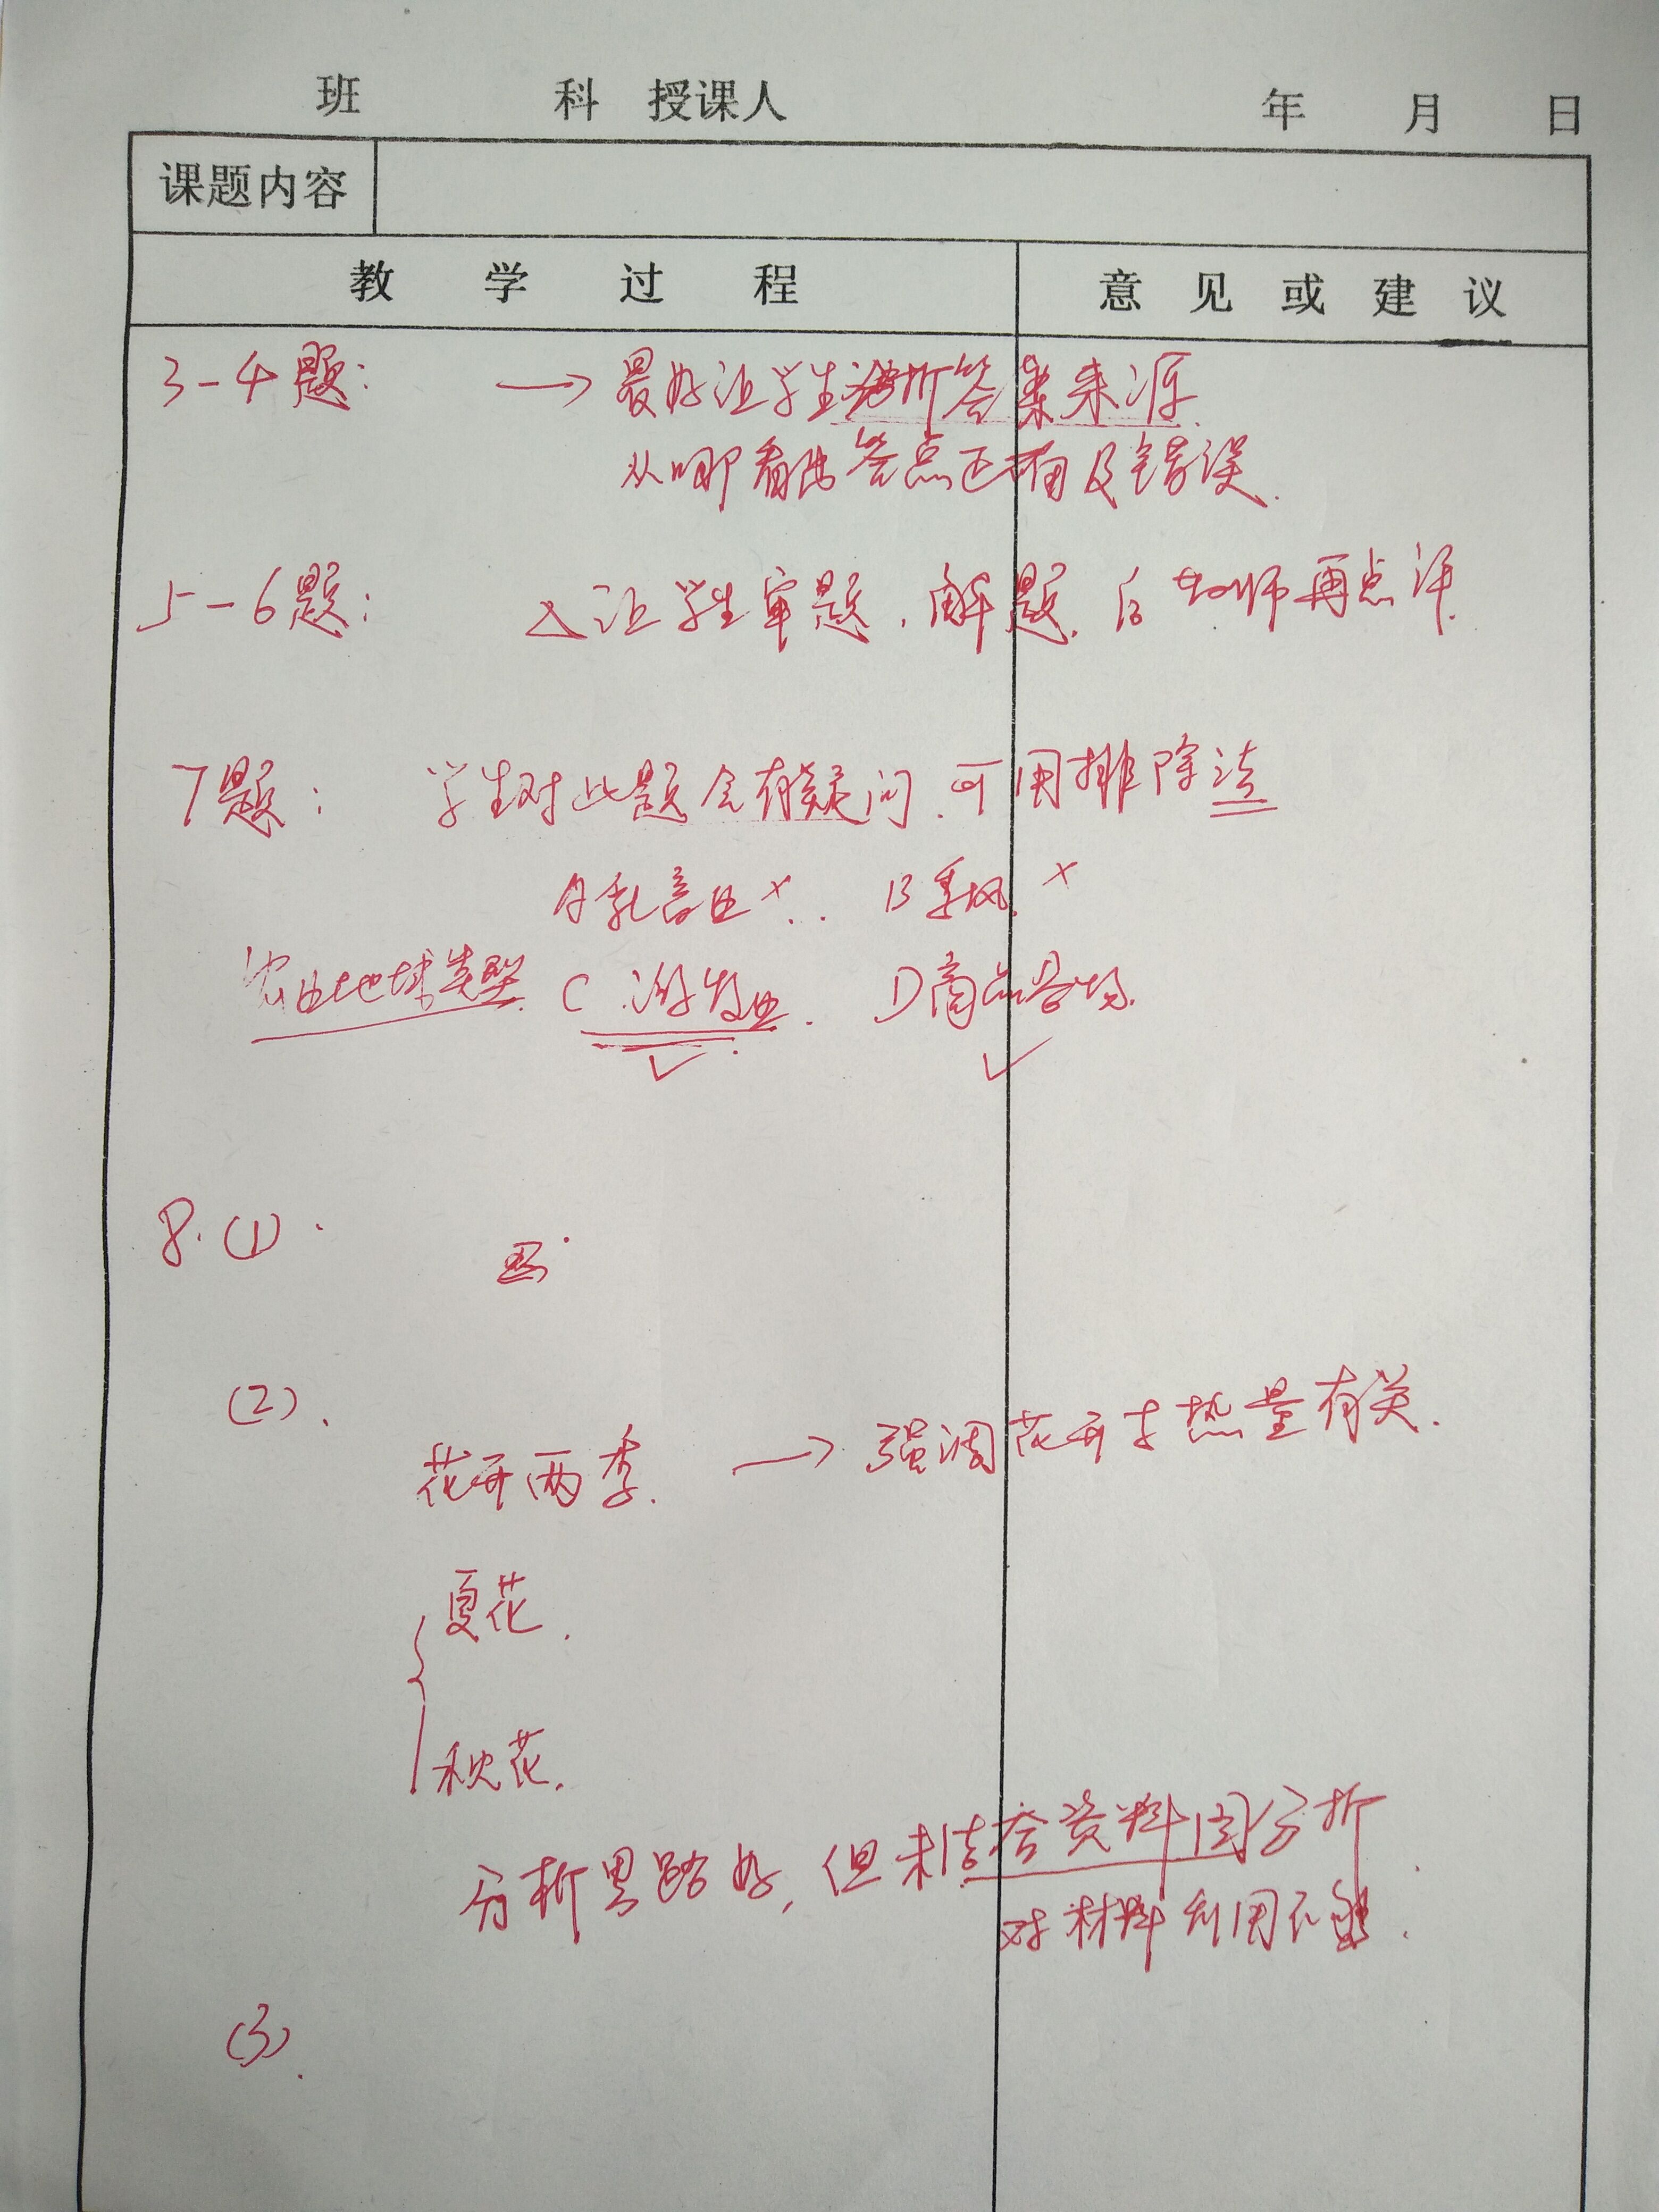 班 科 授课人 年 月 日
课题内容
教学过程 意见或建议
3-4题: → 最好让学生分析答案来源.
从哪看出答点正确及错误.
5-6题: △让学生审题.解题.后教师再点评.
7题: 学生对此题会有疑问.可用排除法
A乳畜业× B季风×
农业地域类型 C 游牧业. D商品谷物.
✓ ✓
8.(1).
(2).
花开两季. → 强调花开与热量有关.
夏花.
秋花.
分析思路好,但未结合资料图分析.
对材料利用不够.
(3).